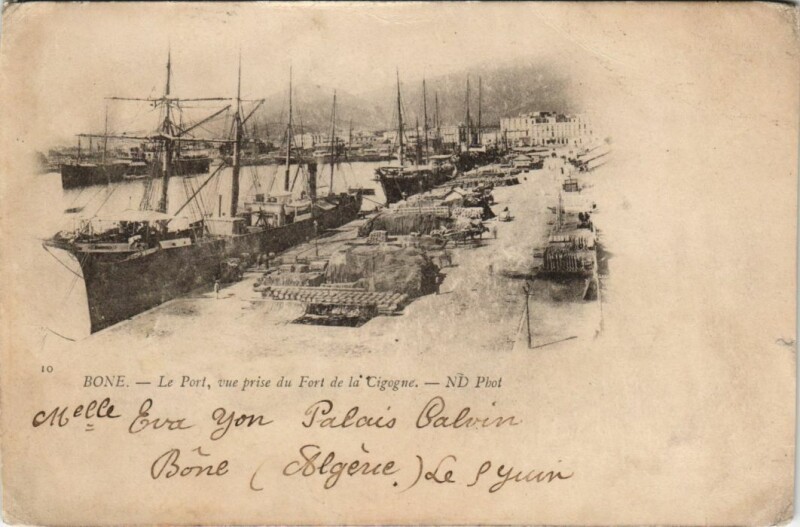 10
BONE. — Le Port, vue prise du Fort de la Cigogne. — ND Phot
Melle Eva Yon Palais Calvin
Bône (Algérie.) Le 9 Juin